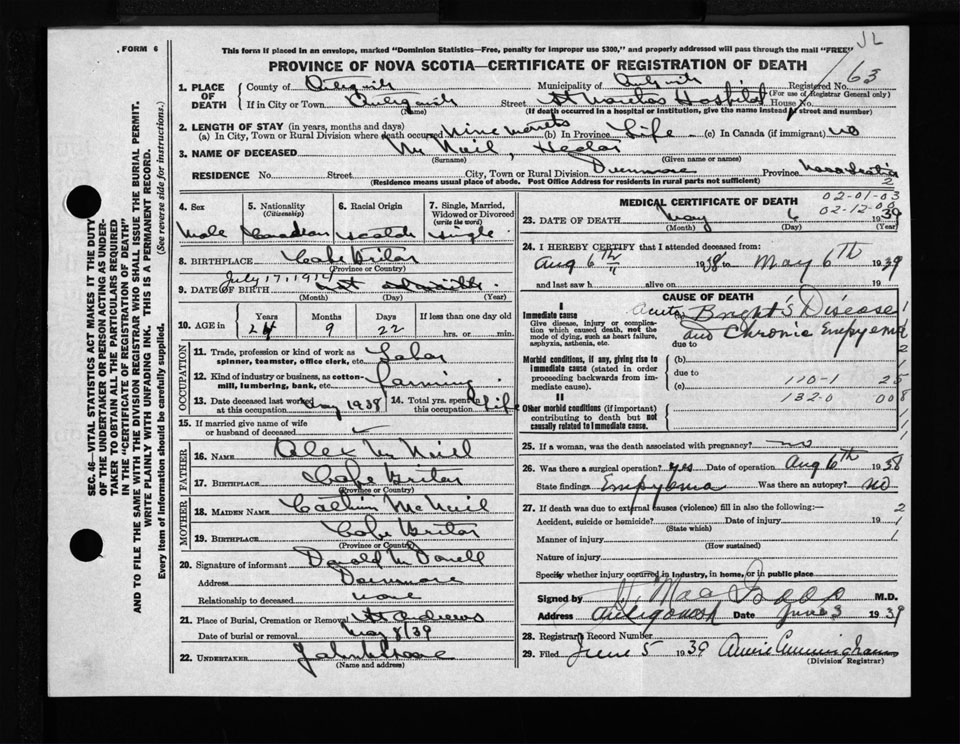 JL
FORM 6
This form if placed in an envelope, marked "Dominion Statistics—Free, penalty for improper use $300," and properly addressed will pass through the mail "FREE"
PROVINCE OF NOVA SCOTIA—CERTIFICATE OF REGISTRATION OF DEATH
63
1. PLACE OF DEATH
County of Antigonish Municipality of Antigonish Registered No.
(For use of Registrar General only)
If in City or Town Antigonish Street St Marthas Hospital House No.
(Name) (If death occurred in a hospital or institution, give the name instead of street and number)
2. LENGTH OF STAY (in years, months and days)
(a) In City, Town or Rural Division where death occurred Nine months (b) In Province Life (c) In Canada (if immigrant) no
3. NAME OF DECEASED Mc Neil, Hector
(Surname) (Given name or names)
RESIDENCE No. Street City, Town or Rural Division Dunmore Province Nova Scotia
(Residence means usual place of abode. Post Office Address for residents in rural parts not sufficient)
2
4. Sex
Male
5. Nationality (Citizenship)
Canadian
6. Racial Origin
Scotch
7. Single, Married, Widowed or Divorced (write the word)
Single
8. BIRTHPLACE Cape Breton
(Province or Country)
July 17, 1914
9. DATE OF BIRTH
(Month) (Day) (Year)
10. AGE in
Years Months Days If less than one day old
24 9 22 hrs. or min.
OCCUPATION
11. Trade, profession or kind of work as spinner, teamster, office clerk, etc. Labor
12. Kind of industry or business, as cotton-mill, lumbering, bank, etc. farming
13. Date deceased last worked at this occupation May 1938
14. Total yrs. spent in this occupation Life
15. If married give name of wife or husband of deceased
FATHER
16. NAME Alex Mc Neil
17. BIRTHPLACE Cape Breton
(Province or Country)
MOTHER
18. MAIDEN NAME McNeil
19. BIRTHPLACE Cape Breton
(Province or Country)
20. Signature of informant
Address Dunmore
Relationship to deceased none
21. Place of Burial, Cremation or Removal St Andrews
Date of burial or removal May 8/39
22. UNDERTAKER
(Name and address)
MEDICAL CERTIFICATE OF DEATH
02-01-03
02-12-00
23. DATE OF DEATH May 6 1939
(Month) (Day) (Year)
24. I HEREBY CERTIFY that I attended deceased from:
Aug 6th 1938 to May 6th 1939
and last saw h alive on 19
CAUSE OF DEATH
I
Immediate cause
Give disease, injury or complication which caused death, not the mode of dying, such as heart failure, asphyxia, asthenia, etc.
(a) Acute Bright's Disease
and Chronic Empyema
due to
Morbid conditions, if any, giving rise to immediate cause (stated in order proceeding backwards from immediate cause).
(b)
due to
(c) 110-1 25
II 132-0 00
Other morbid conditions (if important) contributing to death but not causally related to immediate cause.
25. If a woman, was the death associated with pregnancy? no
26. Was there a surgical operation? yes Date of operation Aug 6th 1938
State findings Empyema Was there an autopsy? no
27. If death was due to external causes (violence) fill in also the following:—
Accident, suicide or homicide? Date of injury 19
(State which)
Manner of injury
(How sustained)
Nature of injury
Specify whether injury occurred in industry, in home, or in public place
Signed by M.D.
Address Antigonish Date June 3 1939
28. Registrar's Record Number
29. Filed June 5 1939 Annie Cunningham
(Division Registrar)
SEC. 46—VITAL STATISTICS ACT MAKES IT THE DUTY OF THE UNDERTAKER OR PERSON ACTING AS UNDERTAKER TO OBTAIN ALL THE PARTICULARS REQUIRED IN THE "CERTIFICATE OF REGISTRATION OF DEATH" AND TO FILE THE SAME WITH THE DIVISION REGISTRAR WHO SHALL ISSUE THE BURIAL PERMIT.
WRITE PLAINLY WITH UNFADING INK. THIS IS A PERMANENT RECORD.
Every item of Information should be carefully supplied. (See reverse side for instructions.)